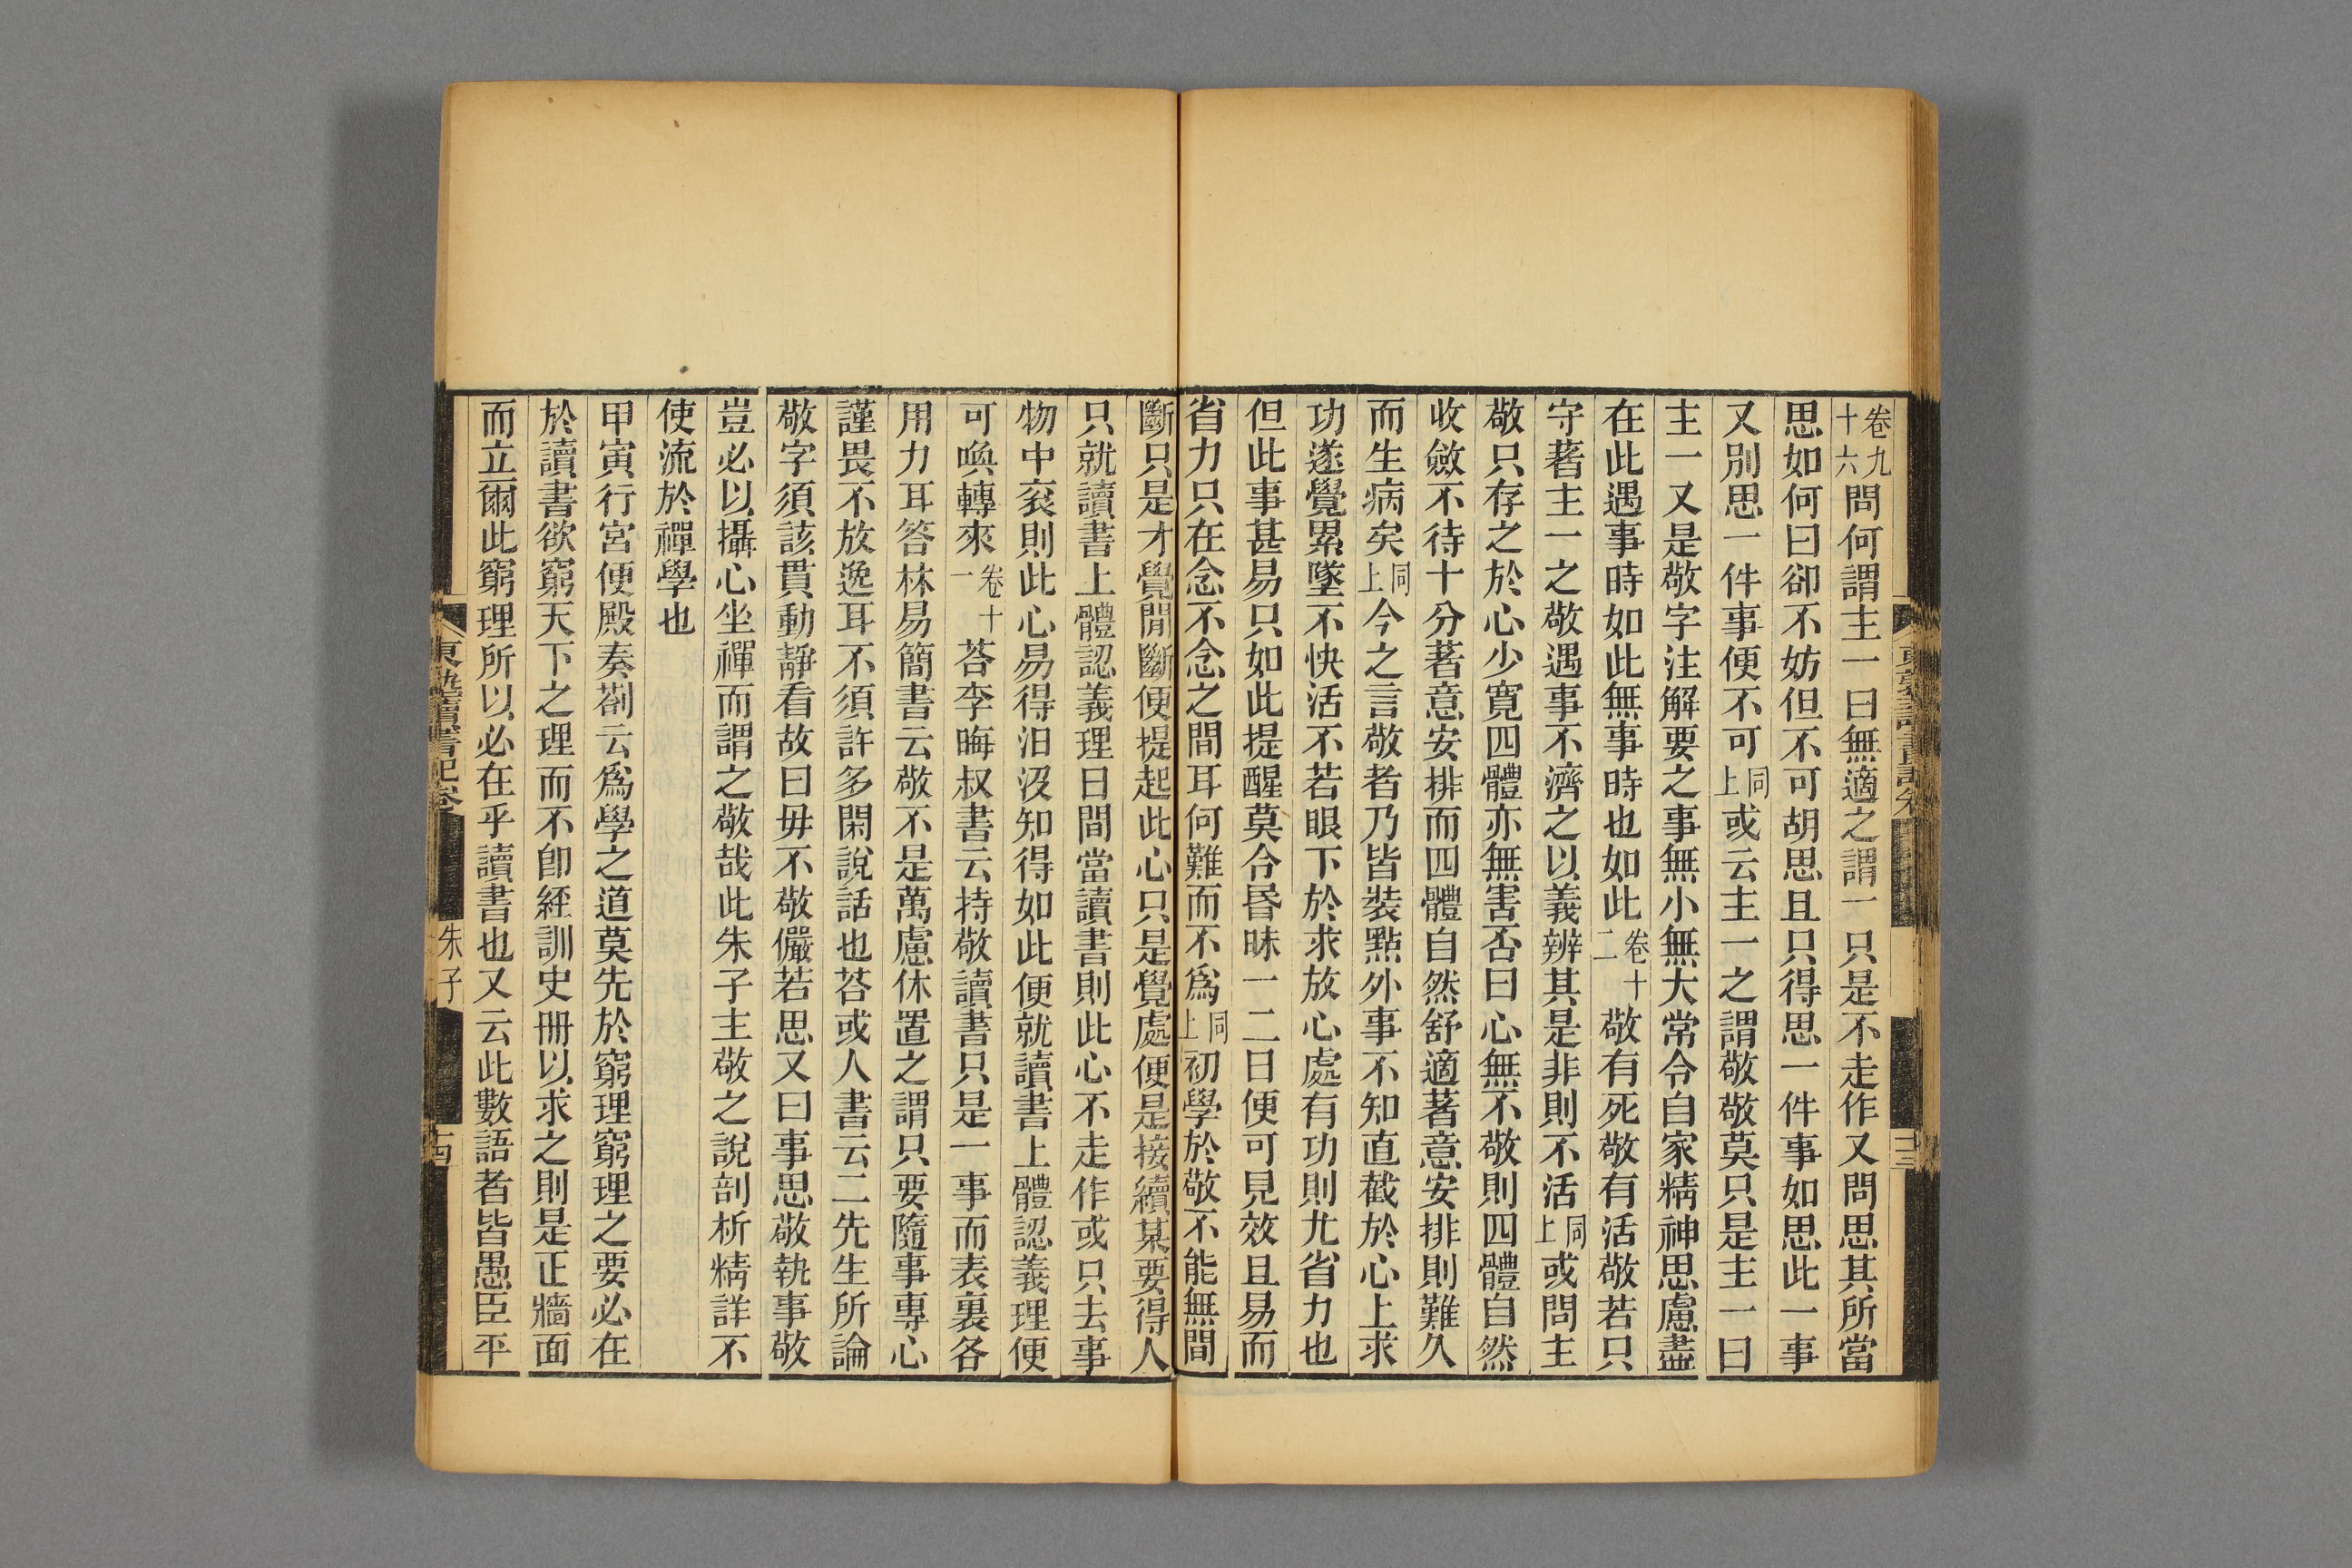 卷九十六問何謂主一曰無適之謂一只是不走作又問思其所當
思如何曰卻不妨但不可胡思且只得思一件事如思此一事
又別思一件事便不可同上或云主一之謂敬敬莫只是主一曰
主一又是敬字注解要之事無小無大常令自家精神思慮盡
在此遇事時如此無事時也如此卷十二敬有死敬有活敬若只
守著主一之敬遇事不濟之以義辨其是非則不活同上或問主
敬只存之於心少寬四體亦無害否曰心無不敬則四體自然
收斂不待十分著意安排而四體自然舒適著意安排則難久
而生病矣同上今之言敬者乃皆裝點外事不知直截於心上求
功遂覺累墜不快活不若眼下於求放心處有功則尤省力也
但此事甚易只如此提醒莫令昬昧一二日便可見效且易而
省力只在念不念之間耳何難而不爲同上初學於敬不能無間
斷只是才覺閒斷便提起此心只是覺處便是接續某要得人
只就讀書上體認義理日間當讀書則此心不走作或只去事
物中衮則此心易得汨沒知得如此便就讀書上體認義理便
可喚轉來卷十一荅李晦叔書云持敬讀書只是一事而表裏各
用力耳答林易簡書云敬不是萬慮休置之謂只要隨事專心
謹畏不放逸耳不須許多閑說話也荅或人書云二先生所論
敬字須該貫動靜看故曰毋不敬儼若思又曰事思敬執事敬
豈必以攝心坐禪而謂之敬哉此朱子主敬之說剖析精詳不
使流於禪學也
甲寅行宮便殿奏劄云爲學之道莫先於窮理窮理之要必在
於讀書欲窮天下之理而不卽經訓史冊以求之則是正牆面
而立爾此窮理所以必在乎讀書也又云此數語者皆愚臣平
東塾讀書記卷
朱子